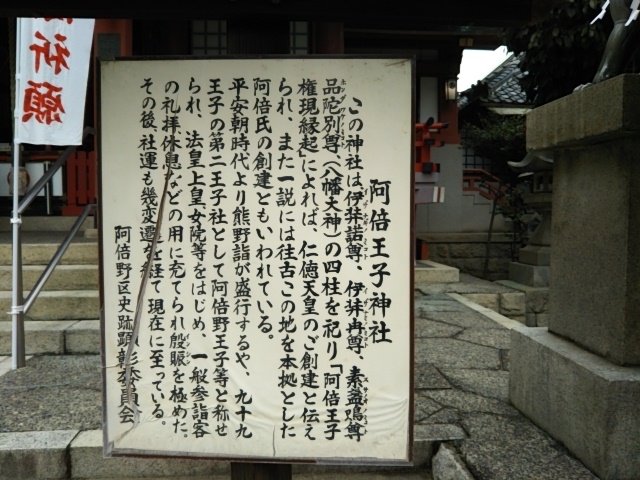 阿倍王子神社
この神社は、伊弉諾尊、伊弉冉尊、素盞鳴尊
品陀別尊（八幡大神）の四柱を祀り「阿倍王子
権現縁起」によれば、仁徳天皇のご創建と伝え
られ、また一説には往古この地を本拠とした
阿倍氏の創建ともいわれている。
平安朝時代より熊野詣が盛行するや、九十九
王子の第二王子社として阿倍野王子等と称せ
られ、法皇上皇、女院等をはじめ、一般参詣客
の礼拝休息などの用に充てられ殷賑を極めた。
その後、社運も幾変遷を経て現在に至っている。
阿倍野区史跡顕彰委員会
祈願